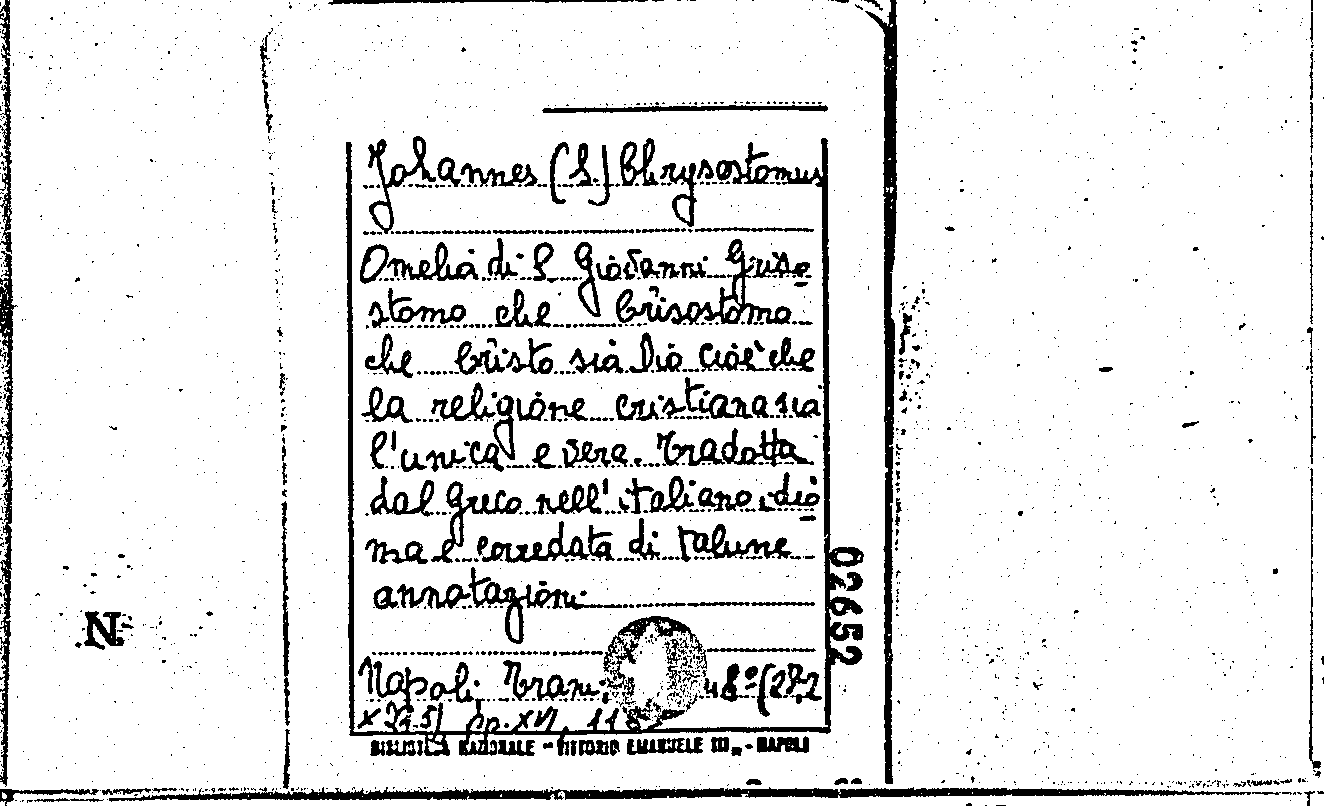 Johannes (S.) Chrysostomus
Omelia di S. Giovanni Griso
stomo che Crisostomo
che Cristo sia Dio cioè che
la religione cristiana sia
l'unica e vera. Tradotta
dal greco nell'italiano idio
ma e corredata di talune
annotazioni
Napoli, Trani, 8°
pp. XVI,
BIBLIOTECA NAZIONALE - VITTORIO EMANUELE III - NAPOLI
02652
N